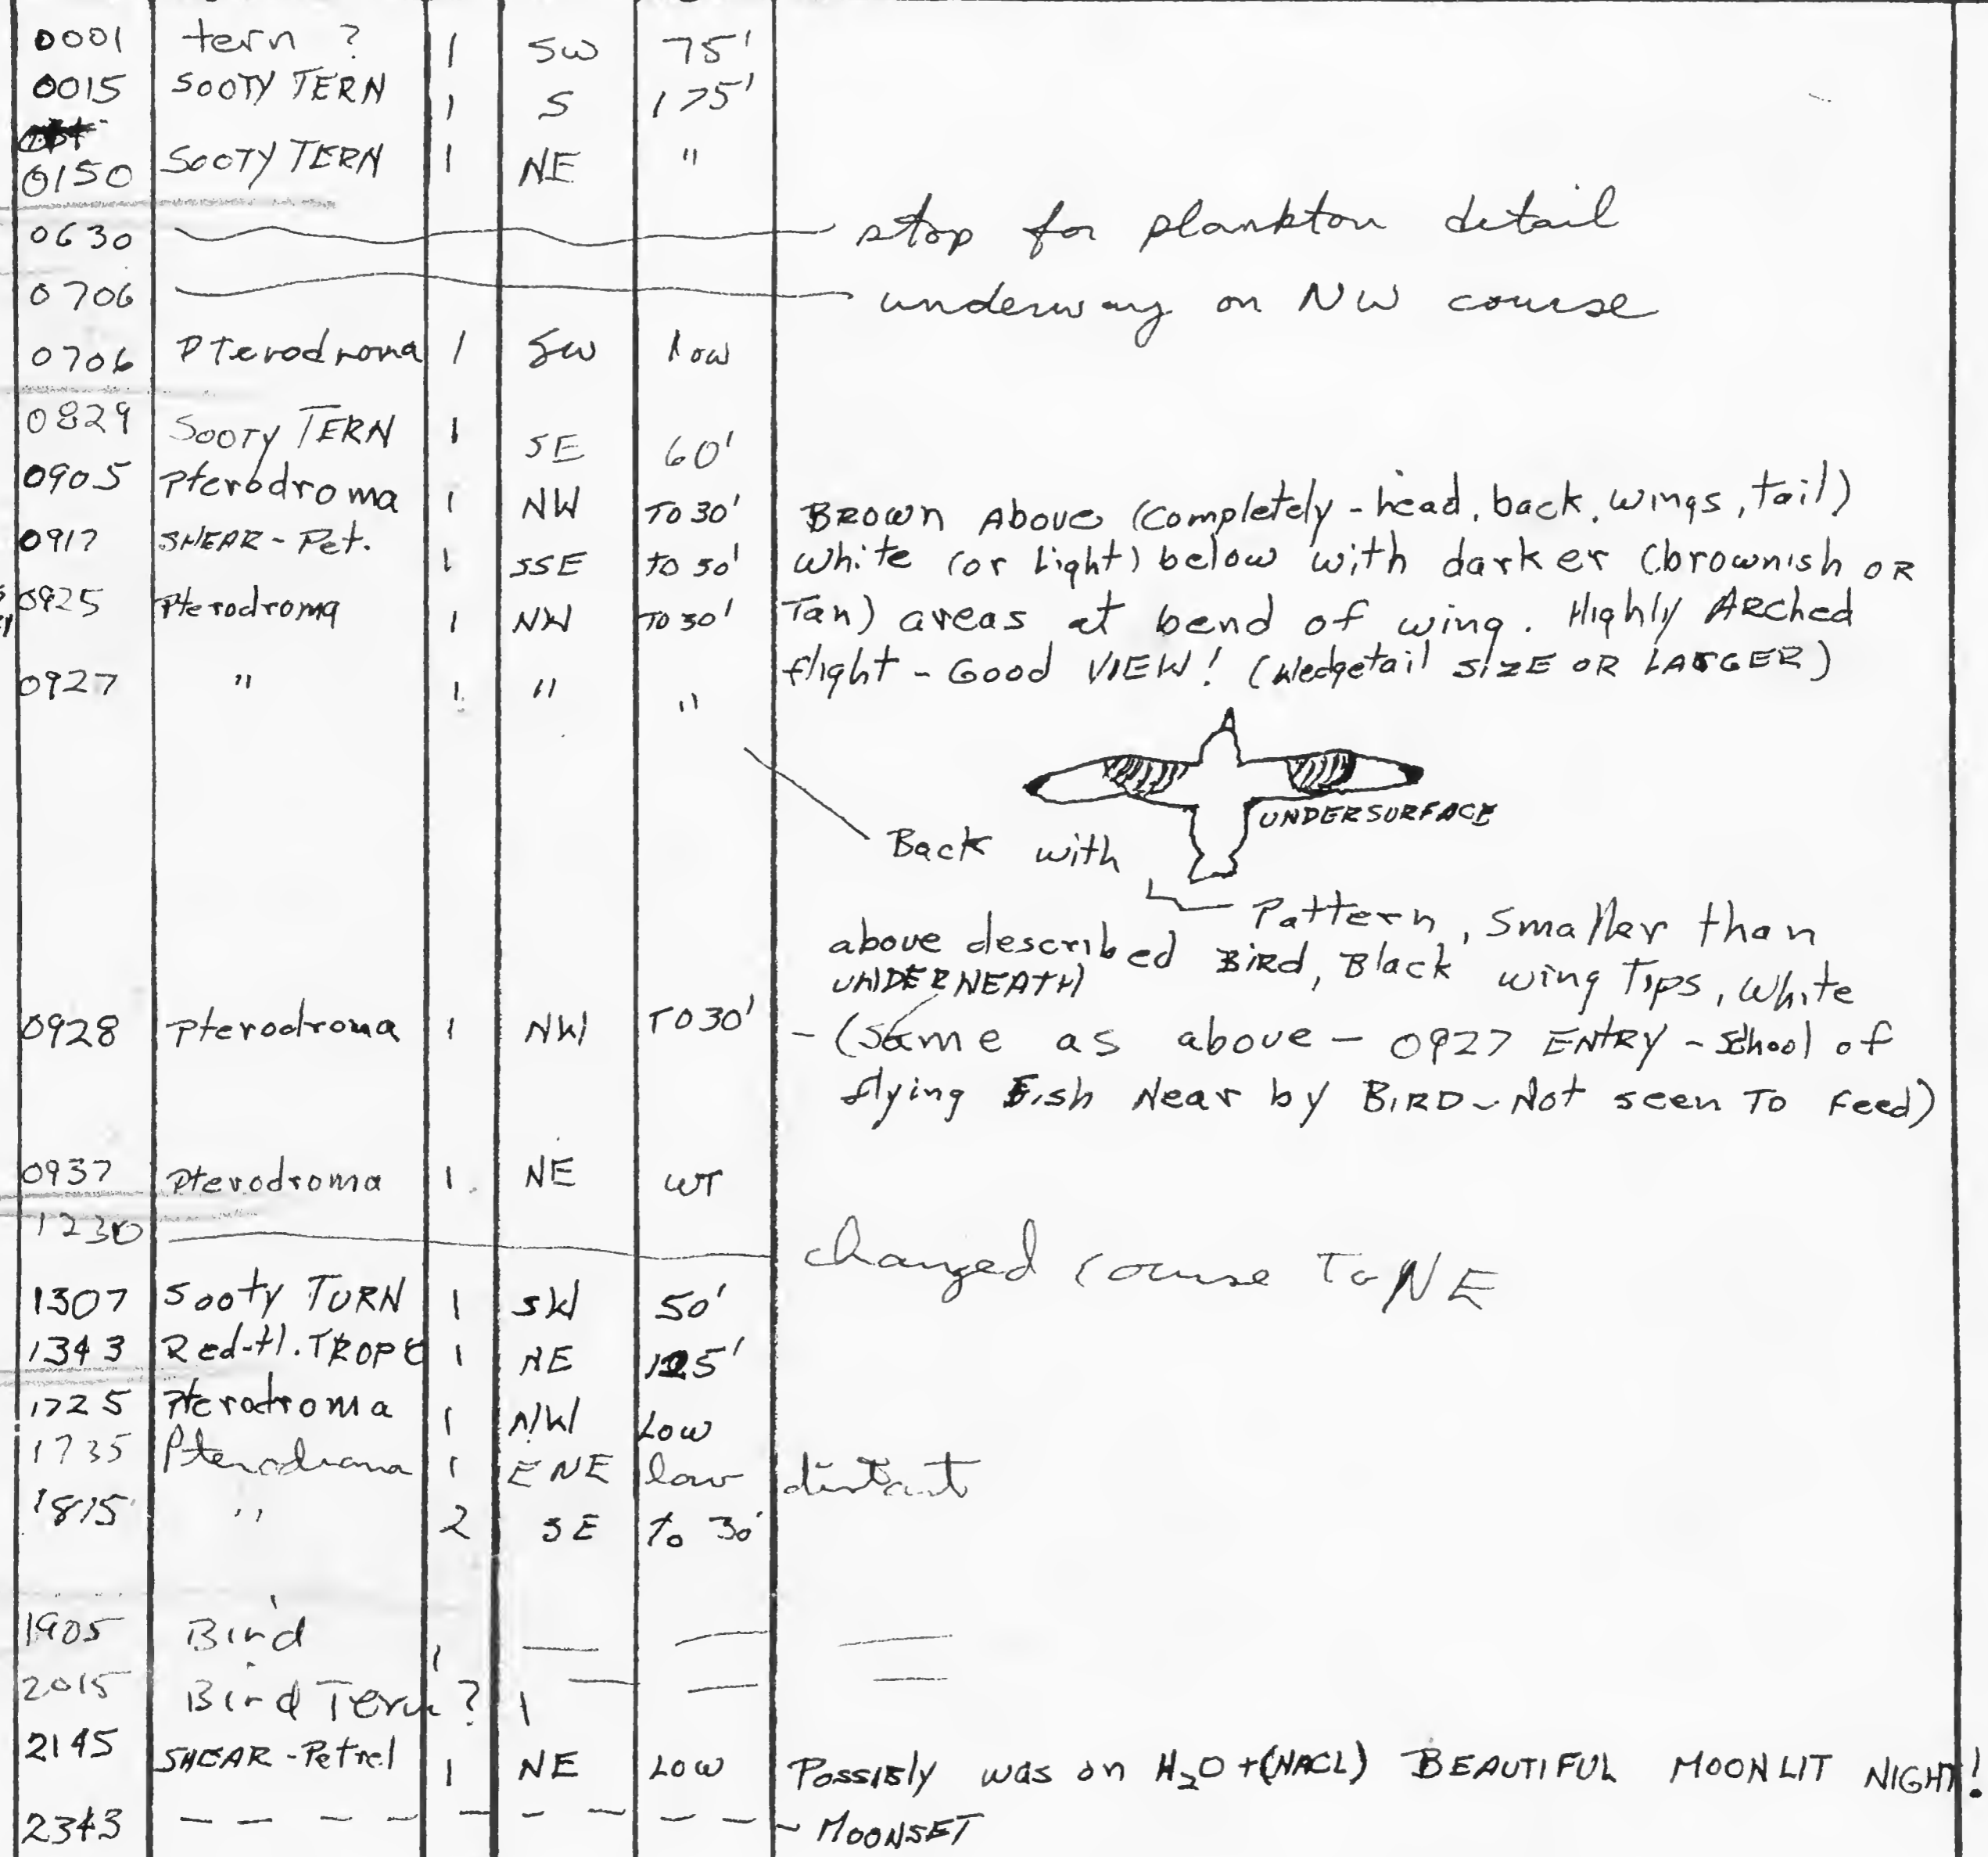 0001 tern ? 1 SW 75'
0015 SOOTY TERN 1 S 175'
0150 SOOTY TERN 1 NE "
0630 stop for plankton detail
0706 underway on NW course
0706 Pterodroma 1 SW low
0829 SOOTY TERN 1 SE 60'
0905 Pterodroma 1 NW TO 30' BROWN Above (completely - head, back, wings, tail)
0917 SHEAR - Pet. 1 SSE TO 50' white (or light) below with darker (brownish OR
0925 Pterodroma 1 NW TO 30' Tan) areas at bend of wing. Highly ARched
0927 " 1 " " flight - Good VIEW! (Wedgetail SIZE OR LARGER)
UNDERSURFACE
Back with
Pattern, Smaller than
above described BIRD, Black wing Tips, White
UNDERNEATH
0928 Pterodroma 1 NW TO 30' - (Same as above - 0927 ENTRY - School of
flying Fish Near by BIRD - Not seen To Feed)
0937 Pterodroma 1 NE WT
1230 changed course To NE
1307 Sooty TURN 1 SW 50'
1343 Red-tl. TROPE 1 NE 125'
1725 Pterodroma 1 NW LOW
1735 Pterodroma 1 ENE low distant
1815 " 2 SE To 30'
1905 Bird 1 — — —
2015 Bird Tern ? 1 — — —
2145 SHEAR - Petrel 1 NE LOW POSSIBLY was on H2O +(NACL) BEAUTIFUL MOONLIT NIGHT!
2343 - - - - - - - - - - MOONSET